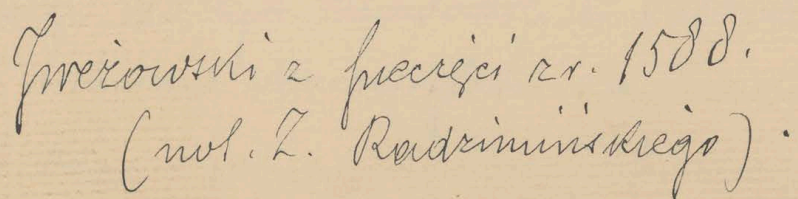 Jweżowski z pieczęci z r. 1588.
(not. Z. Radzimińskiego).